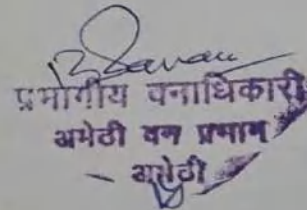 प्रभागीय वनाधिकारी
अमेठी वन प्रभाग
- अमेठी